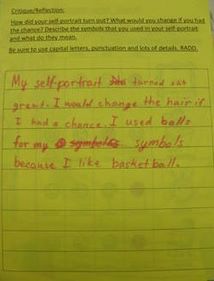 Critique/Reflection:
How did your self-portrait turn out? What would you change if you had
the chance? Describe the symbols that you used in your self-portrait
and what do they mean.
Be sure to use capital letters, punctuation and lots of details, RADD.
My self-portrait turned out
great. I would change the hair if
I had a chance. I used balls
for my symbols symbols
because I like basketball.